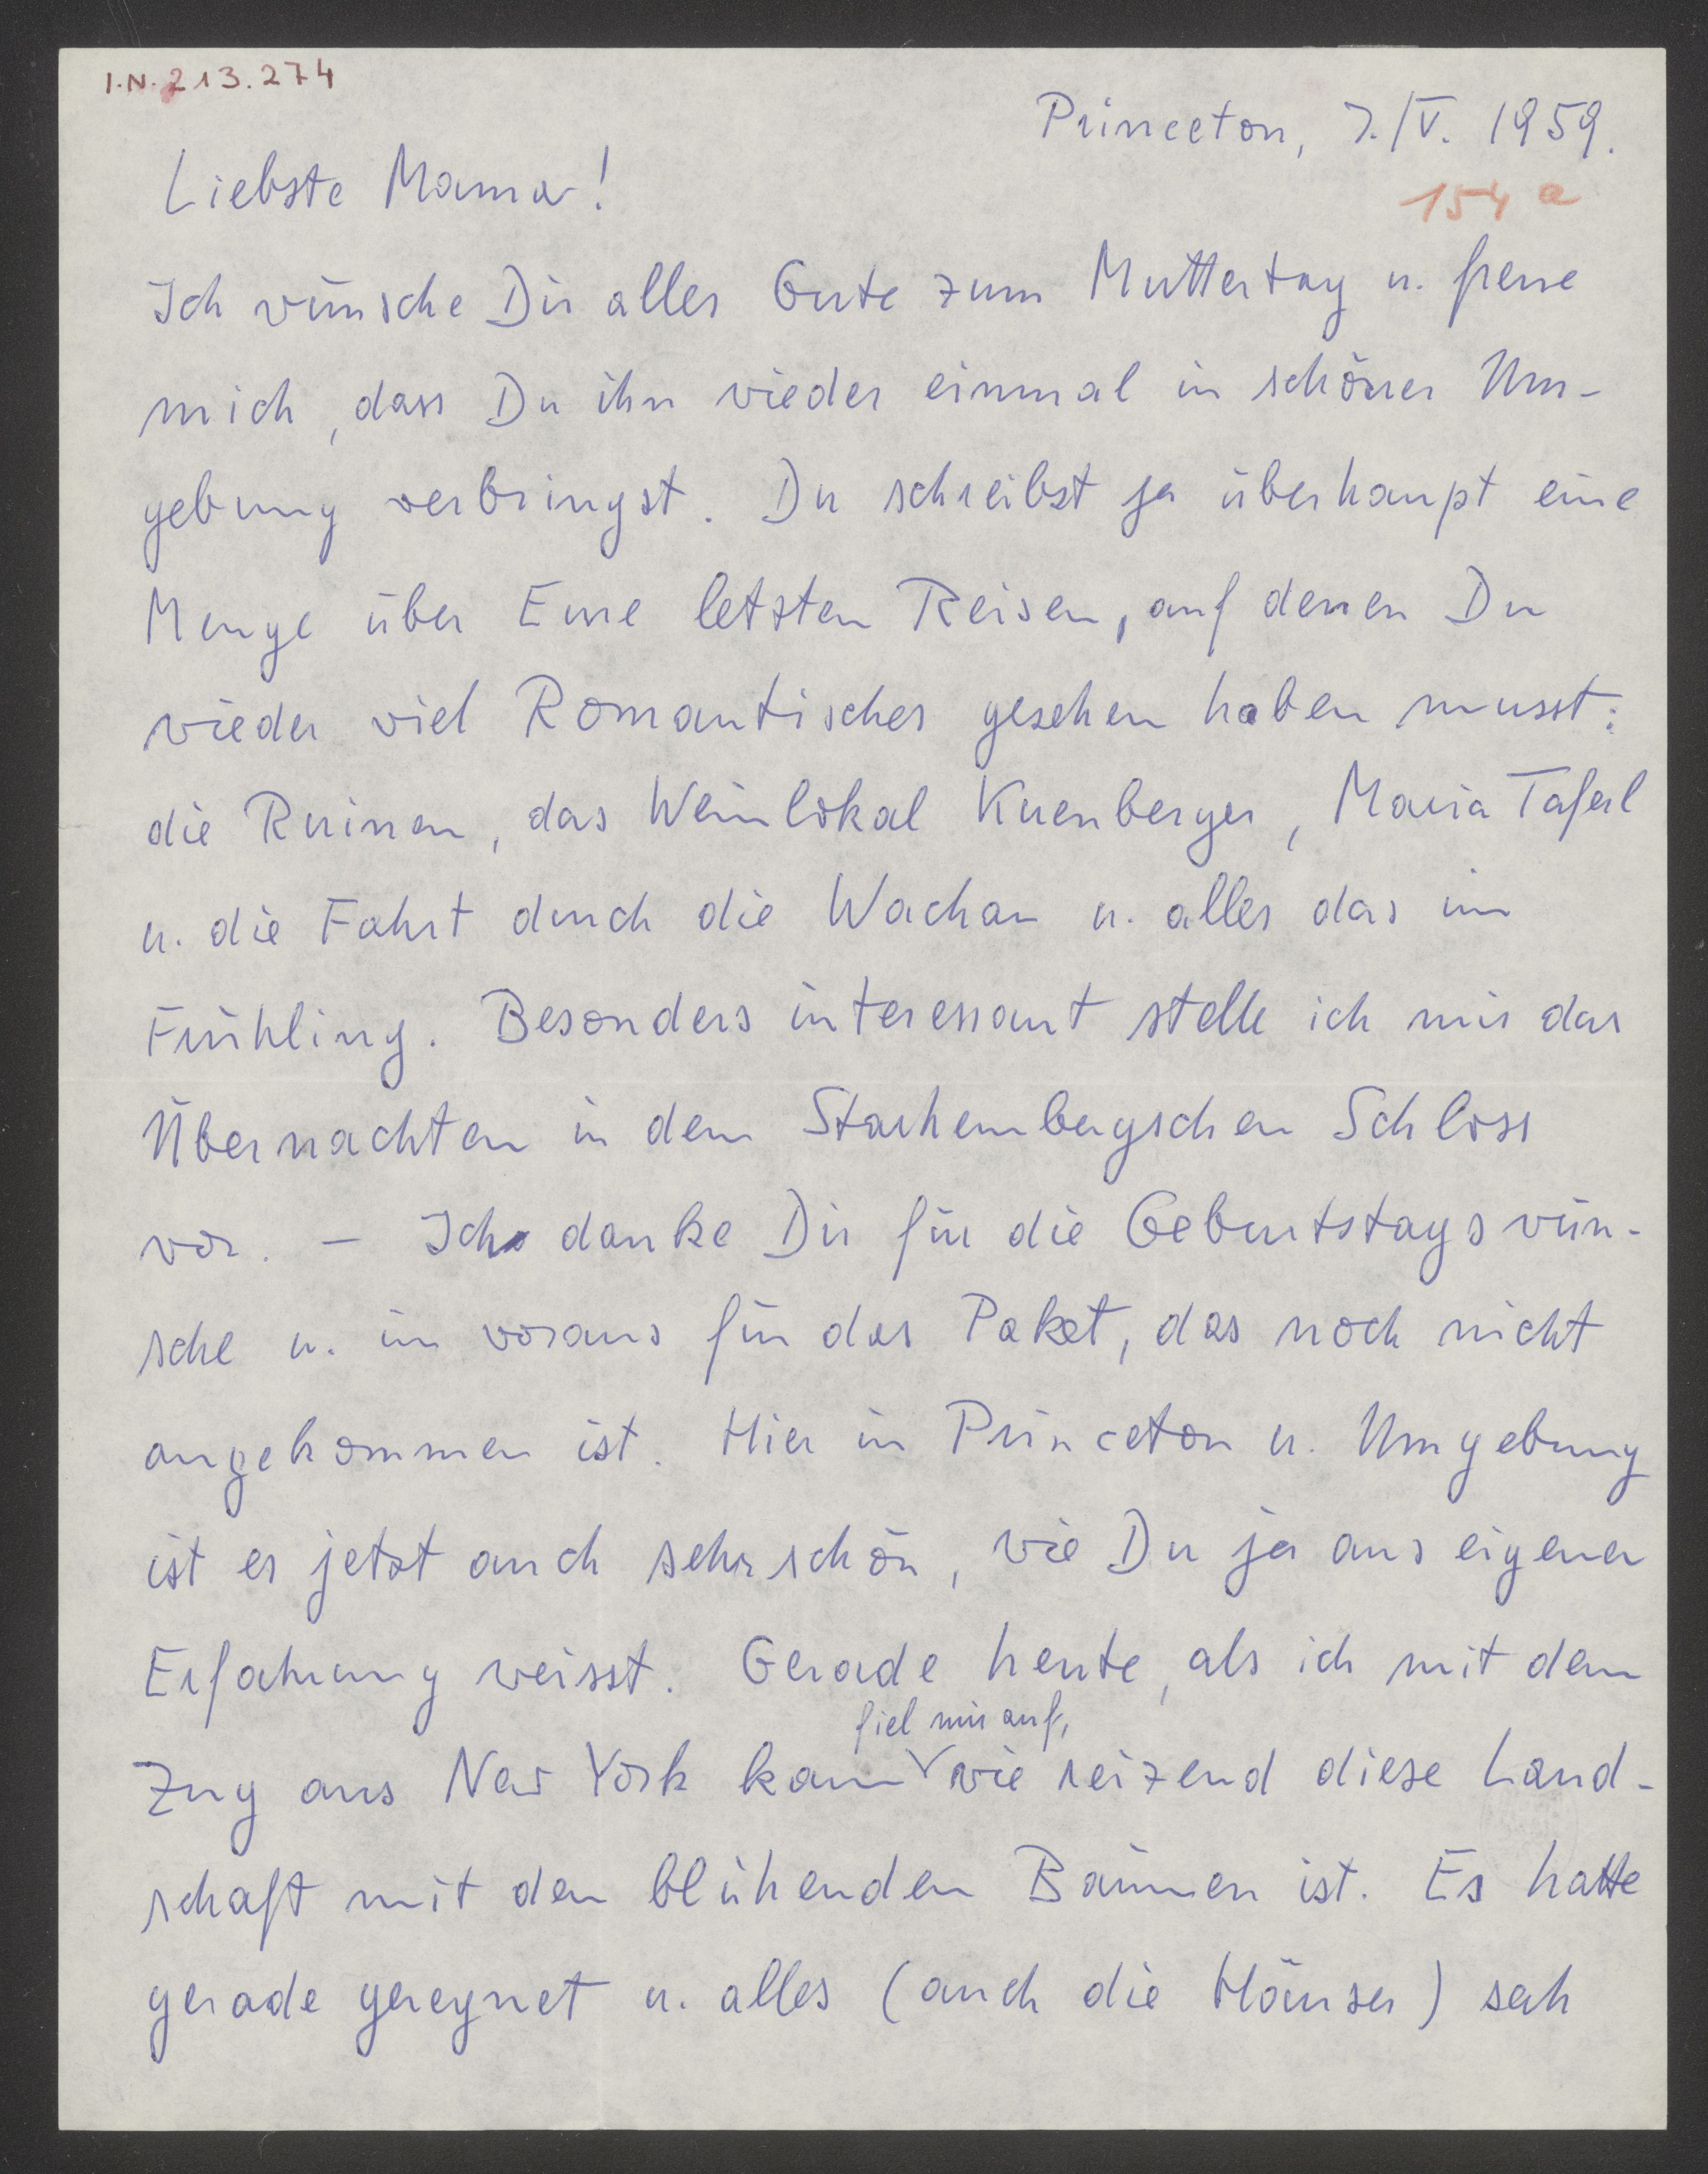 I.N. 213.274
Princeton, 7./V. 1959.
154 a
Liebste Mama!
Ich wünsche Dir alles Gute zum Muttertag u. freue
mich, dass Du ihn wieder einmal in schöner Um-
gebung verbringst. Du schreibst ja überhaupt eine
Menge über Eure letzten Reisen, auf denen Du
wieder viel Romantisches gesehen haben musst:
die Ruinen, das Weinlokal Kuenberger, Maria Taferl
u. die Fahrt durch die Wachau u. alles das im
Frühling. Besonders interessant stelle ich mir das
Übernachten in dem Starhembergschen Schloss
vor. – Ich danke Dir für die Geburtstagswün-
sche u. im voraus für das Paket, das noch nicht
angekommen ist. Hier in Princeton u. Umgebung
ist es jetzt auch sehr schön, wie Du ja aus eigener
Erfahrung weisst. Gerade heute, als ich mit dem
fiel mir auf,
Zug aus New York kam wie reizend diese Land-
schaft mit den blühenden Bäumen ist. Es hatte
gerade geregnet u. alles (auch die Häuser) sah